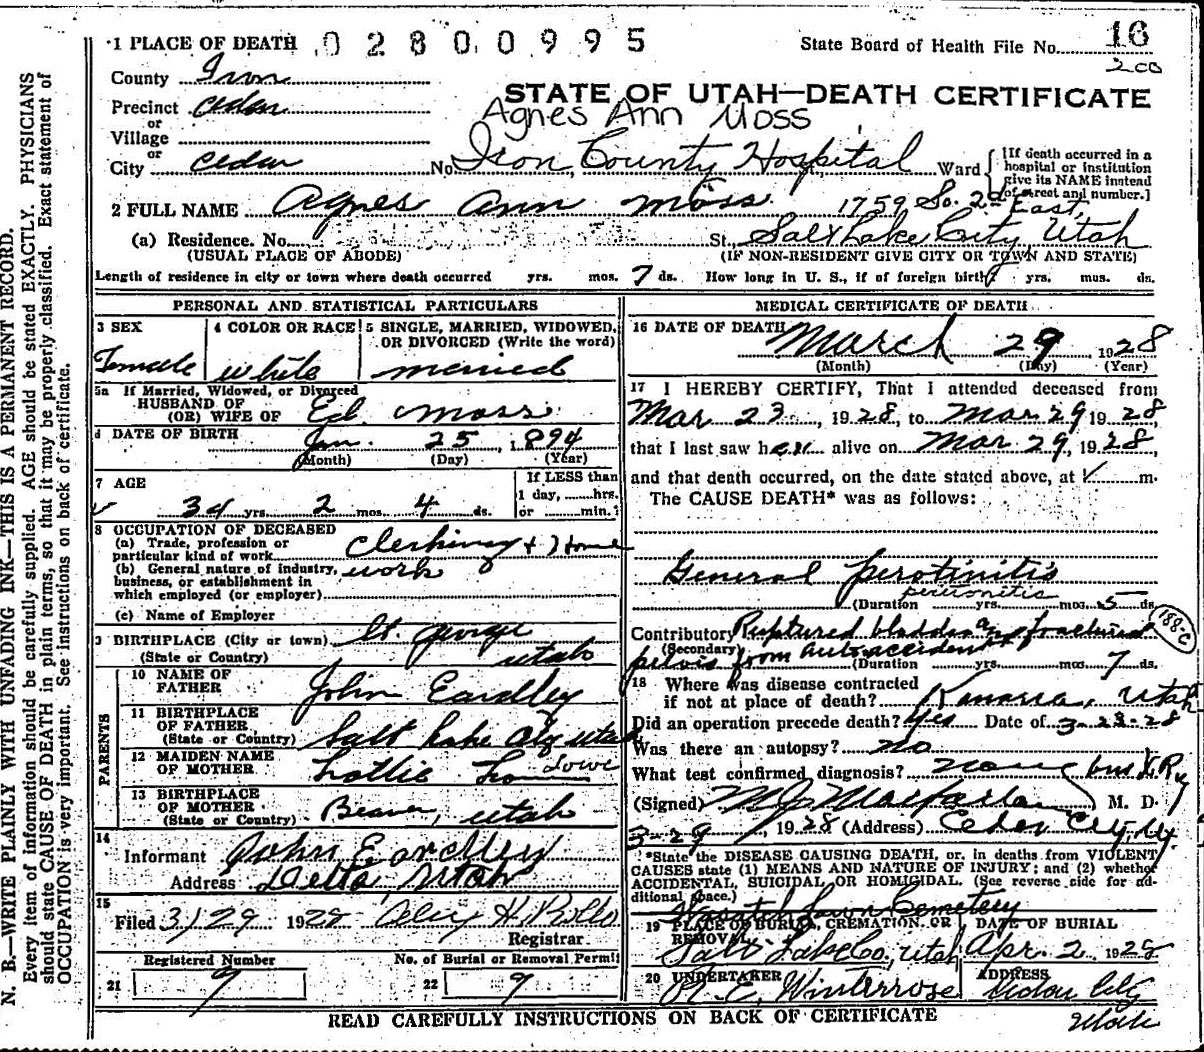 N. B.—WRITE PLAINLY WITH UNFADING INK—THIS IS A PERMANENT RECORD.
Every item of information should be carefully supplied. AGE should be stated EXACTLY. PHYSICIANS
should state CAUSE OF DEATH in plain terms, so that it may be properly classified. Exact statement of
OCCUPATION is very important. See instructions on back of certificate.
1 PLACE OF DEATH 02800995 State Board of Health File No. 16
200
County Iron
STATE OF UTAH—DEATH CERTIFICATE
Precinct Cedar
Agnes Ann Moss
or
Village
or
City Cedar No. Iron County Hospital St., Ward [If death occurred in a hospital or institution give its NAME instead of street and number.]
2 FULL NAME Agnes Ann Moss 1759 So. 2nd East,
(a) Residence. No. St., Salt Lake City, Utah
(USUAL PLACE OF ABODE) (IF NON-RESIDENT GIVE CITY OR TOWN AND STATE)
Length of residence in city or town where death occurred yrs. mos. 7 ds. How long in U. S., if of foreign birth? yrs. mos. ds.
PERSONAL AND STATISTICAL PARTICULARS
3 SEX
Female
4 COLOR OR RACE
white
5 SINGLE, MARRIED, WIDOWED,
OR DIVORCED (Write the word)
married
5a If Married, Widowed, or Divorced
HUSBAND OF
(OR) WIFE OF Ed Moss
6 DATE OF BIRTH Jan. 25 1894
(Month) (Day) (Year)
7 AGE
34 yrs. 2 mos. 4 ds.
If LESS than
1 day, hrs.
or min.?
8 OCCUPATION OF DECEASED
(a) Trade, profession or
particular kind of work Clerking + Home
(b) General nature of industry, work
business, or establishment in
which employed (or employer)
(c) Name of Employer
9 BIRTHPLACE (City or town) St. George
(State or Country) Utah
PARENTS
10 NAME OF
FATHER John Eardley
11 BIRTHPLACE
OF FATHER
(State or Country) Salt Lake City Utah
12 MAIDEN NAME
OF MOTHER Lottie Lowe
13 BIRTHPLACE
OF MOTHER
(State or Country) Beaver, Utah
14
Informant John Eardley
Address Delta, Utah
15
Filed 3/29 1928
Registrar.
Registered Number
21 9
No. of Burial or Removal Permit
22 9
MEDICAL CERTIFICATE OF DEATH
16 DATE OF DEATH
March 29, 1928
(Month) (Day) (Year)
17 I HEREBY CERTIFY, That I attended deceased from
Mar 23, 1928, to Mar 29 1928,
that I last saw her alive on Mar 29, 1928
and that death occurred, on the date stated above, at m.
The CAUSE DEATH* was as follows:
General Perotinitis
peritonitis
(Duration yrs. mos. 5 ds.
Contributory Ruptured bladder and fractured 188-c
(Secondary)
pelvis from auto accident
(Duration yrs. mos. 7 ds.
18 Where was disease contracted
if not at place of death? Kanarra, Utah
Did an operation precede death? Yes Date of 3-23-28
Was there an autopsy? no
What test confirmed diagnosis?
(Signed) M J Macfarlane M. D.
3-29, 1928 (Address) Cedar City, Ut
*State the DISEASE CAUSING DEATH, or, in deaths from VIOLENT
CAUSES state (1) MEANS AND NATURE OF INJURY; and (2) whether
ACCIDENTAL, SUICIDAL OR HOMICIDAL. (See reverse side for additional space.)
Wasatch Lawn Cemetery
19 PLACE OF BURIAL, CREMATION, OR
REMOVAL
Salt Lake Co, Utah
DATE OF BURIAL
Apr. 2, 1928
20 UNDERTAKER
Winterrose
ADDRESS
Cedar City
Utah
READ CAREFULLY INSTRUCTIONS ON BACK OF CERTIFICATE